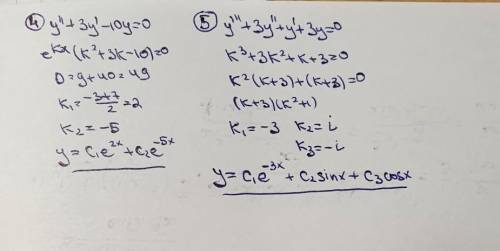 ④ y''+3y'-10y=0
e^{kx}(k²+3k-10)=0
D=9+40=49
k₁=\frac{-3+7}{2}=2
k₂=-5
y=C₁e^{2x}+C₂e^{-5x}
⑤ y'''+3y''+y'+3y=0
k³+3k²+k+3=0
k²(k+3)+(k+3)=0
(k+3)(k²+1)
k₁=-3 k₂=i
k₃=-i
y=C₁e^{-3x}+C₂sinx+C₃cosx